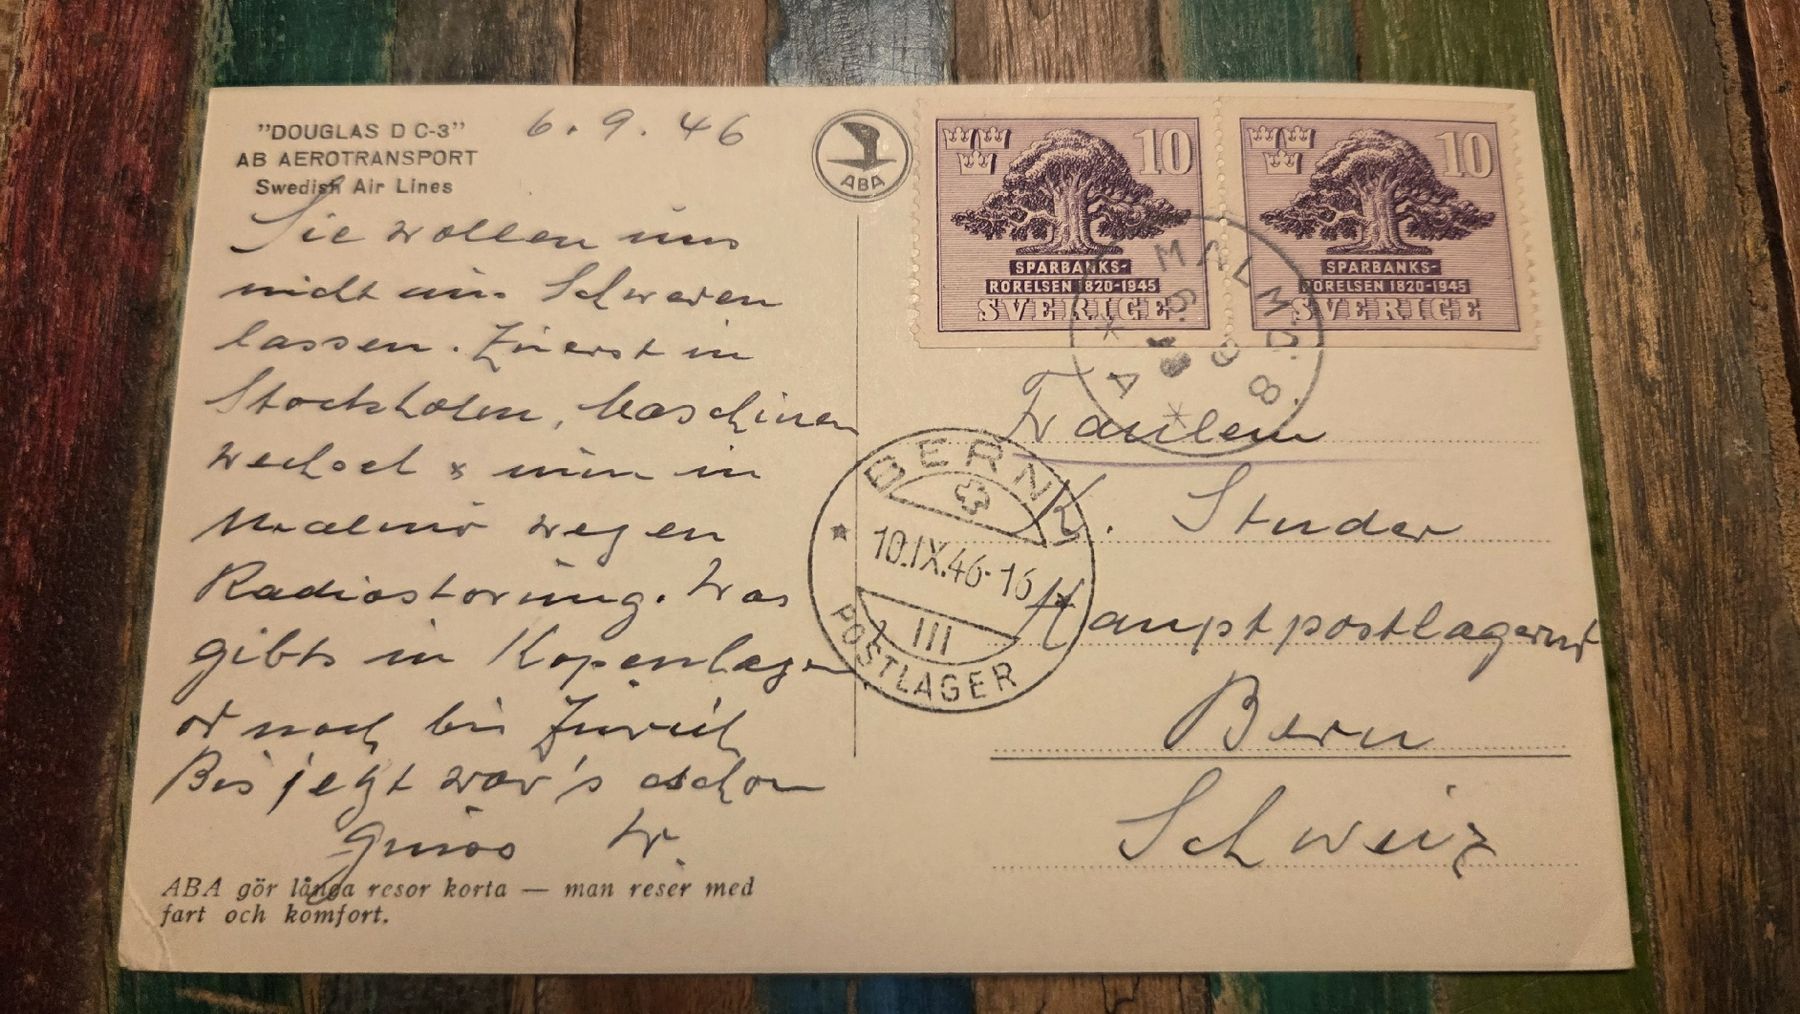 "DOUGLAS D C-3"
AB AEROTRANSPORT
Swedish Air Lines
6. 9. 46
Sie wollen uns
nicht aus Schweden
lassen. Zuerst in
Stockholm, Maschinen
wechsel & nun in
Malmö wegen
Radiostörung. Was
gibts in Kopenhagen
od noch bis Zürich
Bis jetzt war's schon
Gruss W.
ABA gör långa resor korta — man reser med
fart och komfort.
ABA
10
SPARBANKS-
RÖRELSEN 1820-1945
SVERIGE
10
SPARBANKS-
RÖRELSEN 1820-1945
SVERIGE
MALMÖ 8.
6.9.46
BERN
10.IX.46-16
III
POSTLAGER
Fräulein
K. Studer
Hauptpostlagernd
Bern
Schweiz